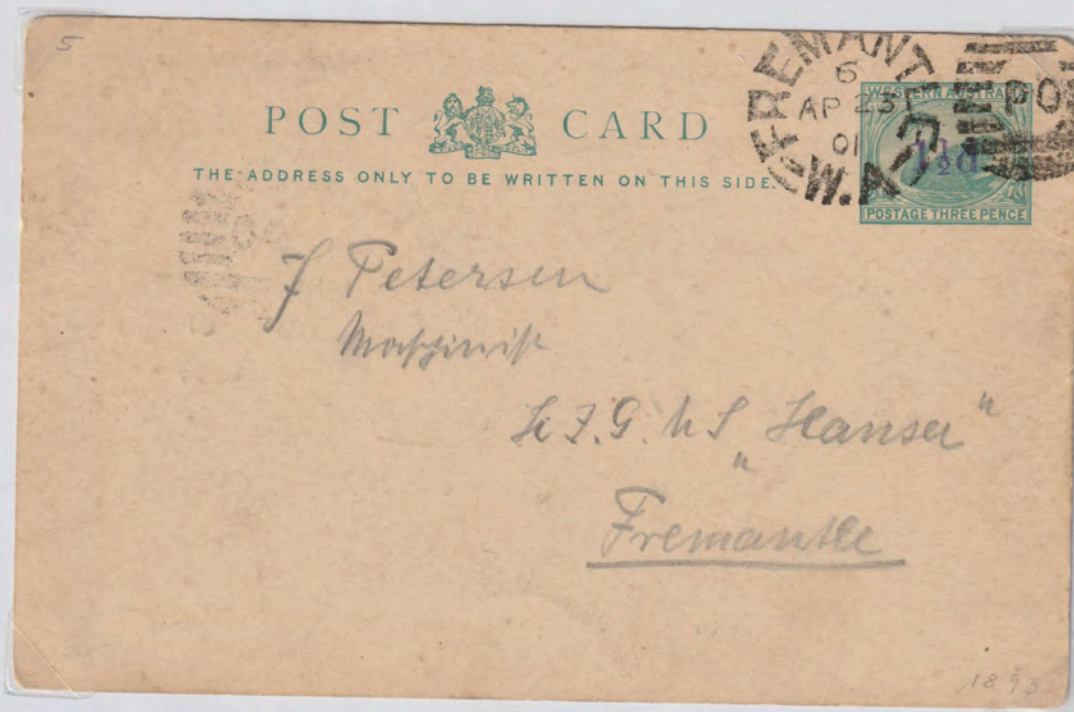 5
POST CARD
THE ADDRESS ONLY TO BE WRITTEN ON THIS SIDE.
FREMANTLE
6
AP 23
01
W.A
PO
WESTERN AUSTRALIA
1½d
POSTAGE THREE PENCE
J Petersen
Maschinist
S. "Hansa"
Fremantle
1893